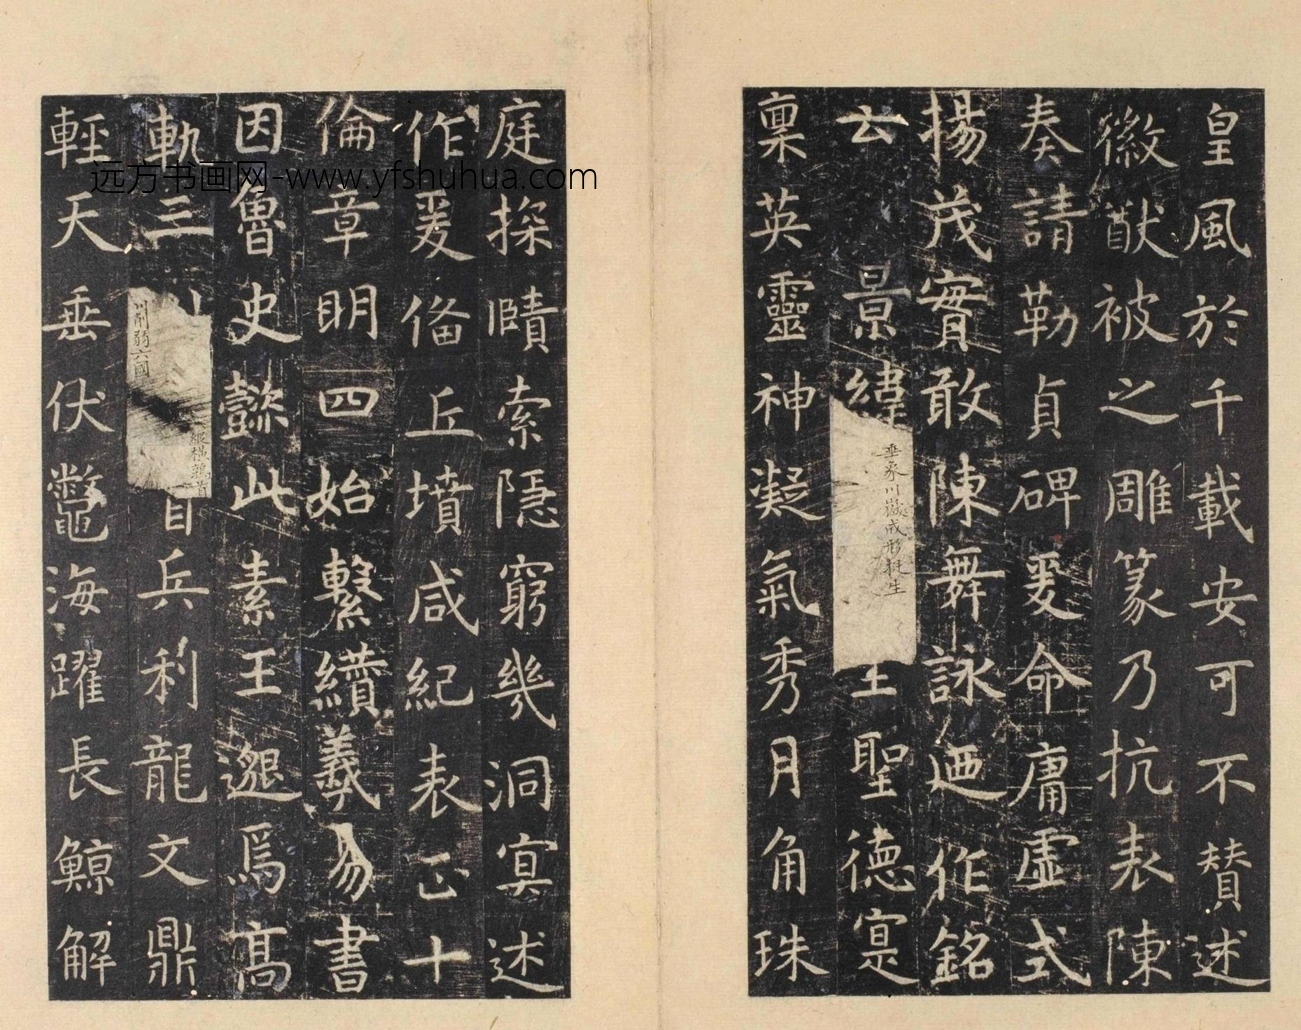 皇風於千載安可不贊述
徽猷被之雕篆乃抗表陳
奏請勒貞碑爰命庸虛式
揚茂實敢陳舞詠迺作銘
云景緯
垂象川嶽成形挺生
王聖德寔
稟英靈神凝氣秀月角珠
庭探賾索隱窮幾洞冥述
作爰俻丘墳咸紀表正十
倫章明四始繫纘羲易書
因魯史懿此素王邈焉高
軌三
川削弱六國
縱橫鶉首
首兵利龍文鼎
輕天垂伏鼈海躍長鯨解
远方书画网-www.yfshuhua.com